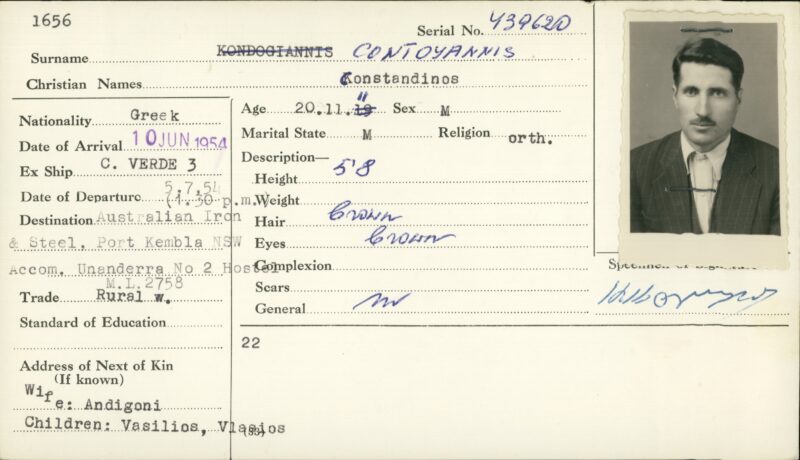 1656
Serial No. 439620
Surname KONDOGIANNIS CONTOYANNIS
Christian Names Constandinos
Nationality Greek
Date of Arrival 10 JUN 1954
Ex Ship C. VERDE 3
Date of Departure 5.7.54
(1.30 p.m.)
Destination Australian Iron
& Steel, Port Kembla NSW
Accom. Unanderra No 2 Hostel
M.L.2758
Trade Rural w.
Standard of Education
Address of Next of Kin
(If known)
Wife: Andigoni
Children: Vasilios, Vlasios
Age 20.11.19 11 Sex M
Marital State M Religion orth.
Description—
Height 5'8
Weight
Hair brown
Eyes brown
Complexion
Scars
General
Specimen of Signature
22
(33)